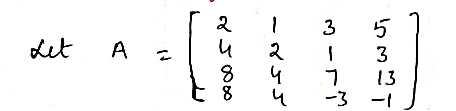 Let A = [ 2 1 3 5
4 2 1 3
8 4 7 13
8 4 -3 -1 ]